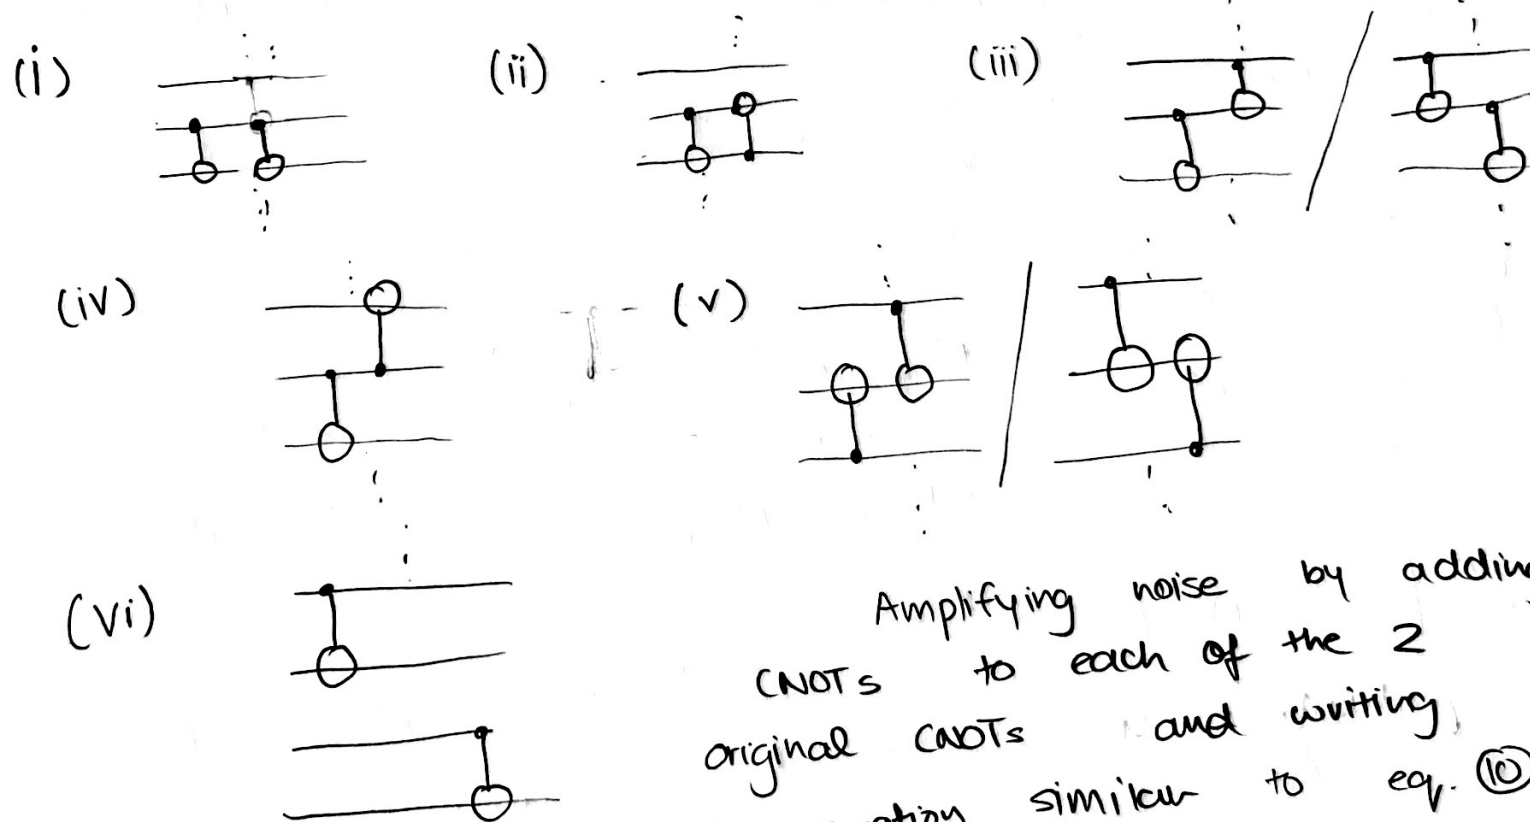 (i)
(ii)
(iii)
(iv)
(v)
(vi)
Amplifying noise by addin
CNOTs to each of the 2
original CNOTs and writing
similar to eq. 10